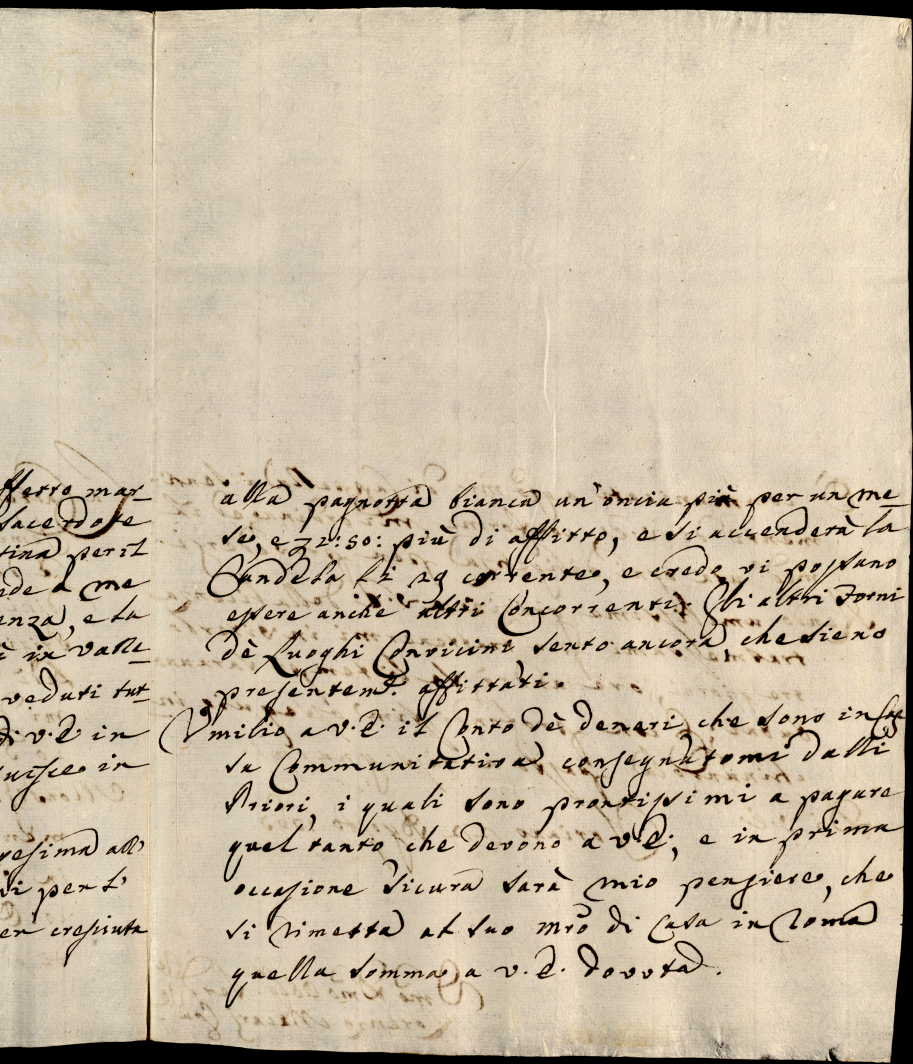 ffetto mar-
Sacerdote
tina per il
ide à me
enza, e la
è in Valle-
veduti tut-
di V. E. in
uisce in
resima all'
vi per l'
er cresciuta
alla pagnotta bianca un'oncia più per un me-
se, e 72:50: più di affitto, e si accenderà la
Candela li 29 corrente, e credo vi possano
essere anche altri Concorrenti. Gli altri Forni
dè Luoghi Convicini sento ancora, che sieno
presentem.e affittati.
Umilio a V. E. il Conto dè denari, che sono in Cas-
sa Communitativa consegnatomi dalli
Priori, i quali sono prontissimi a pagare
quel tanto che devono a V. E., e in prima
occasione sicura sarà mio pensiere, che
si rimetta al suo Mro di Casa in Roma
quella somma a V. E. dovuta.